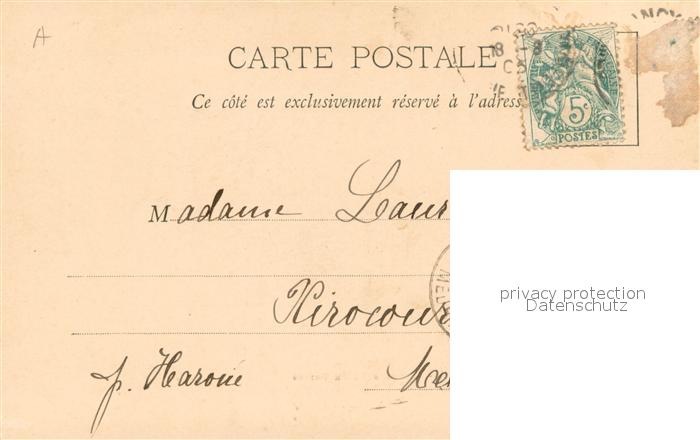 A
CARTE POSTALE
Ce côté est exclusivement réservé à l'adress
5c
POSTES
Madame Laur
Xirocour
p. Haroué Me
privacy protection
Datenschutz